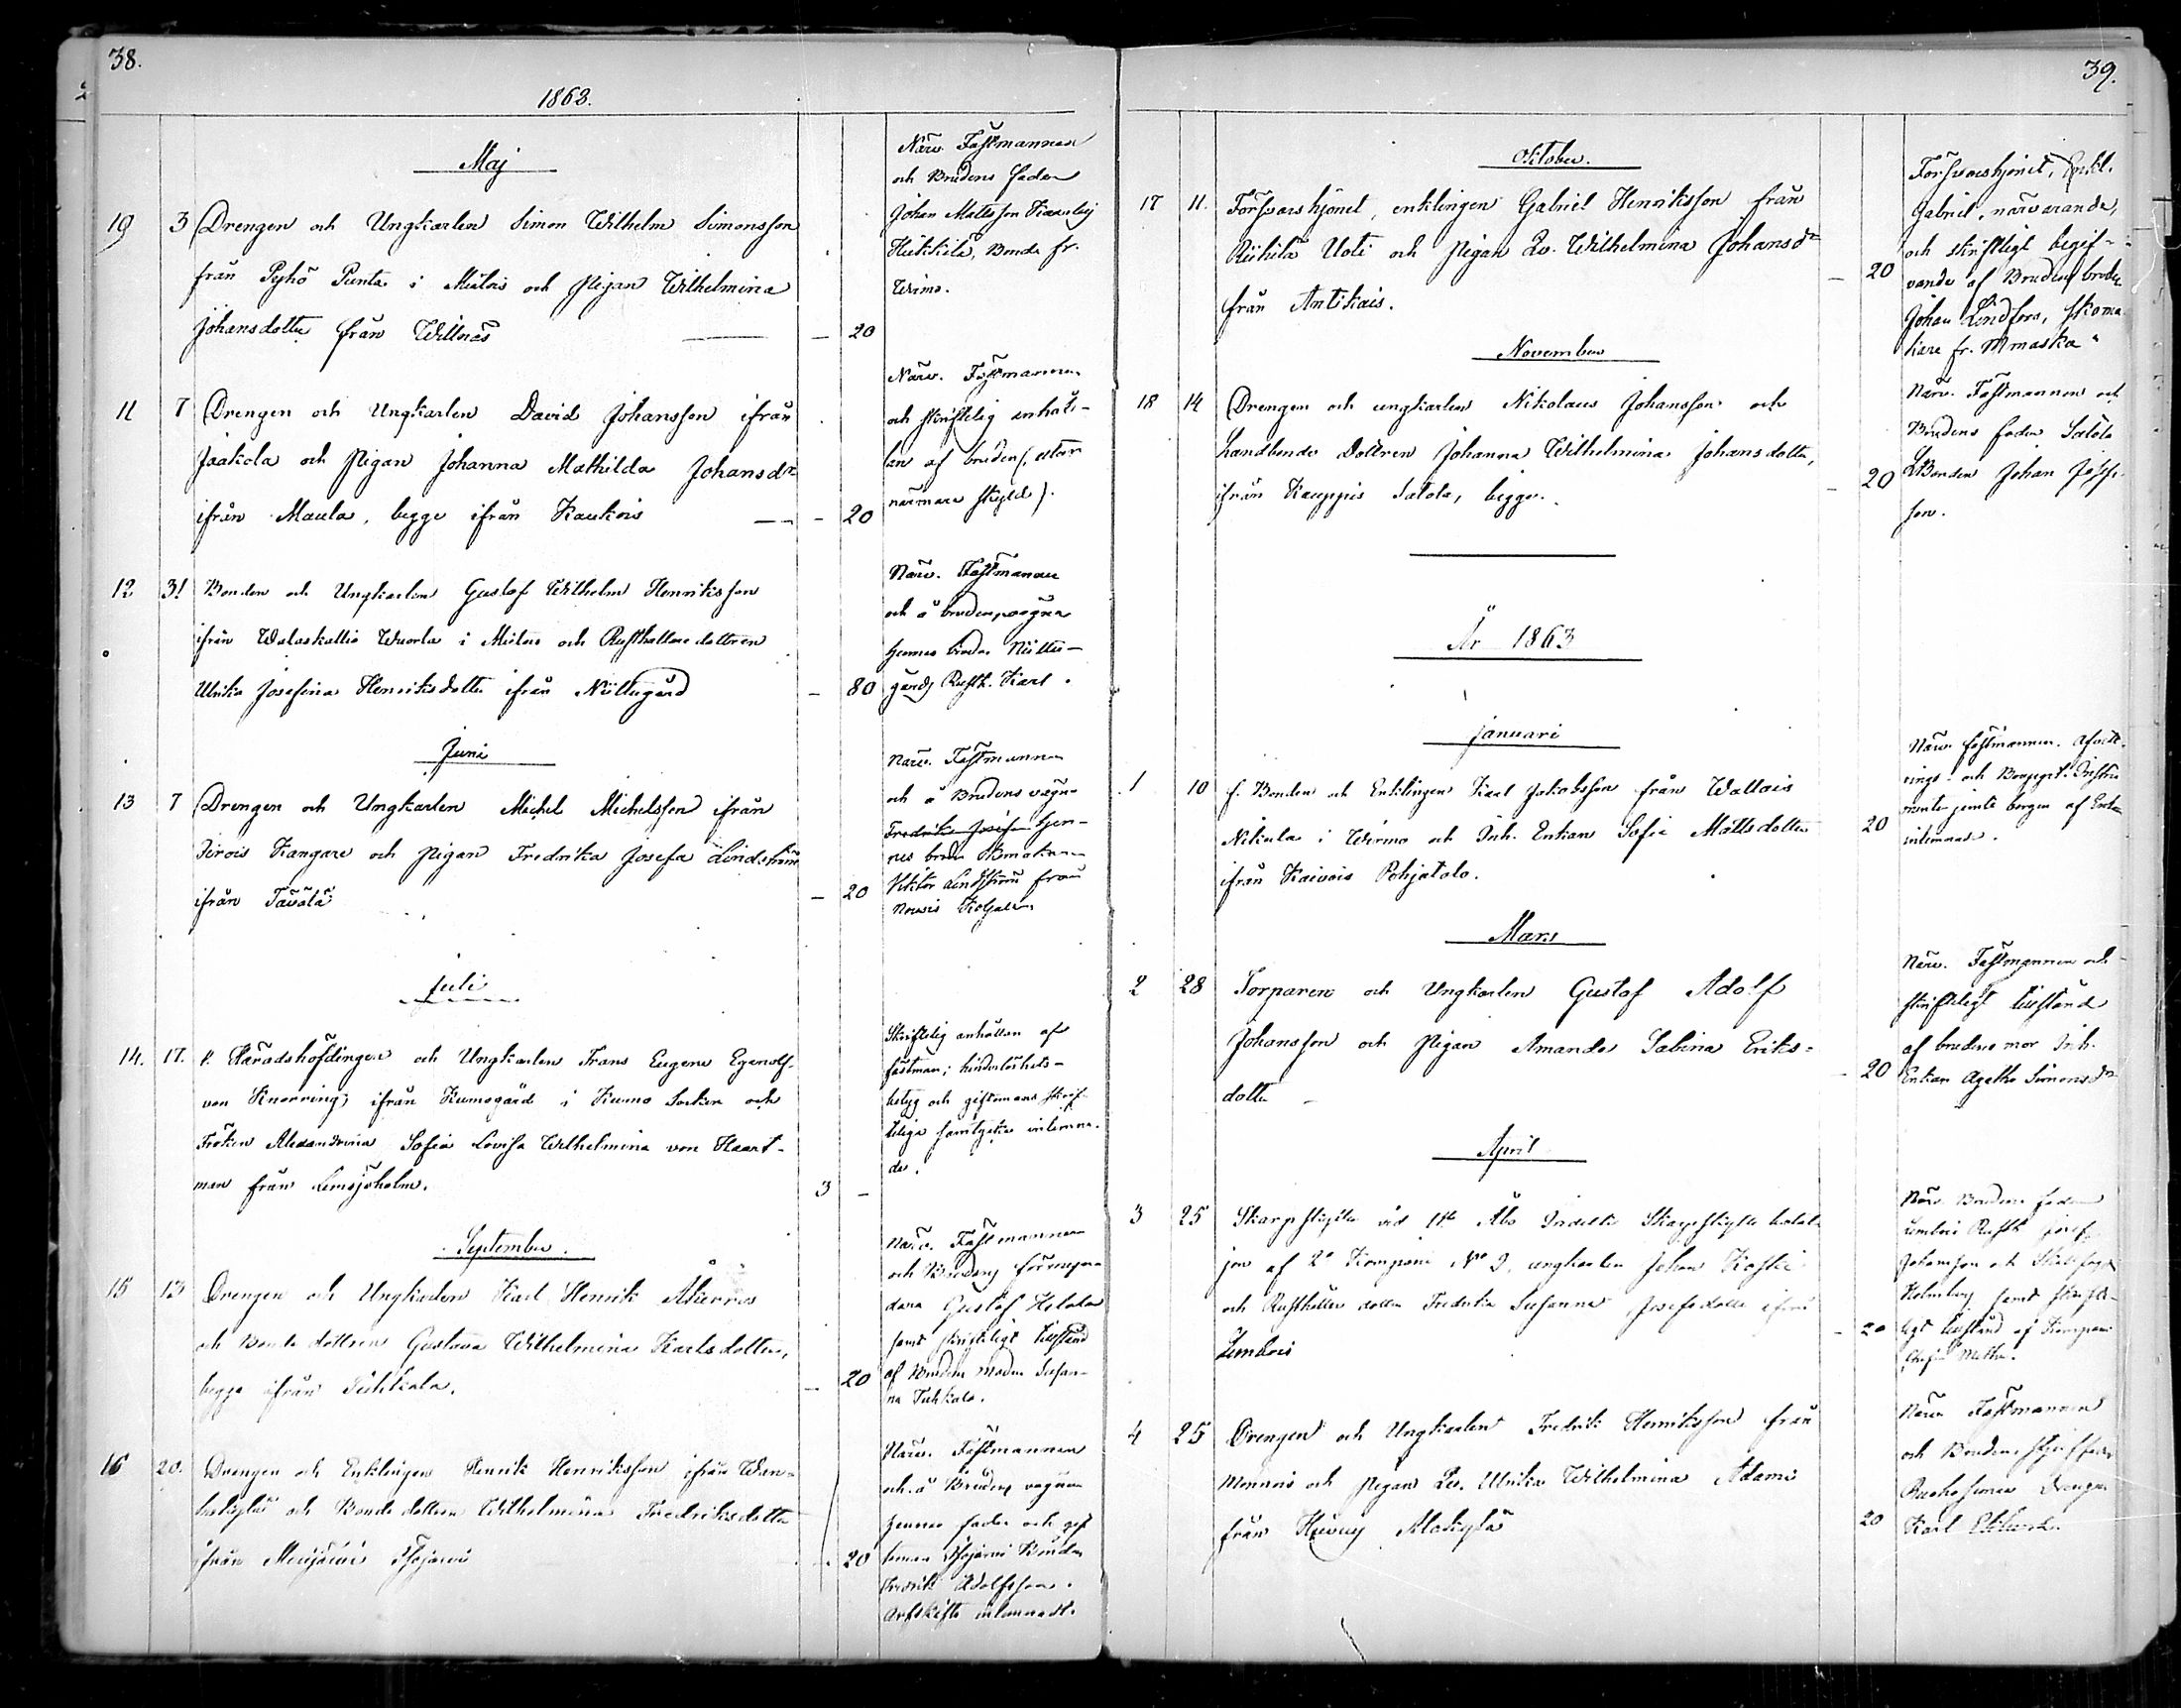 38.
1862.
Maj
19 3 Drengen och Ungkarlen Simon Wilhelm Simonsson
från Pyhö Punta i Mietois och Pigan Wilhelmina
Johansdotter från Willnäs — 20
Närv. Fästmannen
och Brudens fader
Johan Mattsson
Bonde fr.
Wirmo.
11 7 Drengen och Ungkarlen David Johansson ifrån
Jaakola och Pigan Johanna Mathilda Johansdr
ifrån Maula, begge ifrån Kaukois — 20
Närv. Fästmannen
och skriftelig anhål-
lan af bruden, utan
närmare skyld.
12 31 Bonden och Ungkarlen Gustaf Wilhelm Henriksson
ifrån Walaskallio i Mietois och Rusthållare dottren
Ulrika Josefina Henriksdotter ifrån Niittugård — 80
Närv. Fästmannen
och å brudens vägnar
hennes broder Niittu-
gårds Rusth. Karl.
Juni
13 7 Drengen och Ungkarlen Michel Michelsson ifrån
Kangare och Pigan Fredrika Josefa Lindström
ifrån Tavåla — 20
Närv. Fästmannen
och å Brudens vägnar
Fredrika Josefa hen-
nes broder
Viktor Lindström från
Nousis
Juli
14. 17. v. Häradshöfdingen och Ungkarlen Frans Eugene Egenolf
von Knorring, ifrån Kumogård i Kumo Socken och
Fröken Alexandrina Sofia Lovisa Wilhelmina von Haart-
man från Lemsjöholm. 3 —
Skriftelig anhållan af
fästman; hinderlöshets-
betyg och giftomans skrif-
teliga samtycke inlemna-
de.
September.
15 13 Drengen och Ungkarlen Karl Henrik
och Bonde dottren Gustava Wilhelmina Karlsdotter,
begge ifrån Tuhkala. — 20
Närv. Fästmannen
och Brudens förmyn-
dare Gustaf
samt skrifteligt tillstånd
af Brudens moder Susan-
na Tuhkala.
16 20. Drengen och Enklingen Henrik Henriksson ifrån Wan-
och Bonde dottren Wilhelmina Fredriksdotter
ifrån — 20
Närv. Fästmannen
och å Brudens vägnar
hennes fader och gif-
toman Bonden
Fredrik Adolfsson.
Arfskifte inlemnadt.
39.
October.
17 11. Försvarshjonet, enklingen Gabriel Henriksson från
Uoti och Pigan Qv. Wilhelmina Johansdr
från Antikais. — 20
Försvarshjonet, Enkl.
Gabriel, närvarande,
och skriftligt begif-
vande af Brudens broder
Johan Lindfors, skoma-
kare fr. Mmasku
November
18 14 Drengen och ungkarlen Nikolaus Johansson och
Landbonde Dottren Johanna Wilhelmina Johansdotter,
ifrån Kauppis Satola, begge. — 20
Närv. Fästmannen och
Brudens fader Satola
LBonden Johan
son.
År 1863
Januari
1 10 f. Bonden och Enklingen Karl Jakobsson från Wallais
Nikula i Wirmo och Inh. Enkan Sofia Mattsdotter
ifrån Kaivois Pohjatalo. 20
Närv. fästmannen. Afvitt-
rings- och
jemte borgen af Enkan
inlemnade.
Mars
2 28 Torparen och Ungkarlen Gustaf Adolf
Johansson och Pigan Amanda Sabina Eriks-
dotter — 20
Närv. Fästmannen och
skrifteligt tillstånd
af brudens mor Inh.
Enkan Agatha Simonsdr
April
3 25 Skarpskytten vid 1sta Åbo Indelta Skarpskytte batal-
jon af 2a Kompani No 9, ungkarlen Johan Koski
och Rusthållar dotter Fredrika Susanna Josefsdotter ifrån
Lembois — 20
Närv. Brudens fader
Lembois Rusth. Josef
Johansson och
Holmberg samt skrifte-
ligt tillstånd af Kompani
Chefen
4 25 Drengen och Ungkarlen Fredrik Henriksson från
Monnois och Pigan Qv. Ulrika Wilhelmina Adami
från Alakylä 20
Närv. Fästmannen
och Brudens styffader
Drengen
Karl